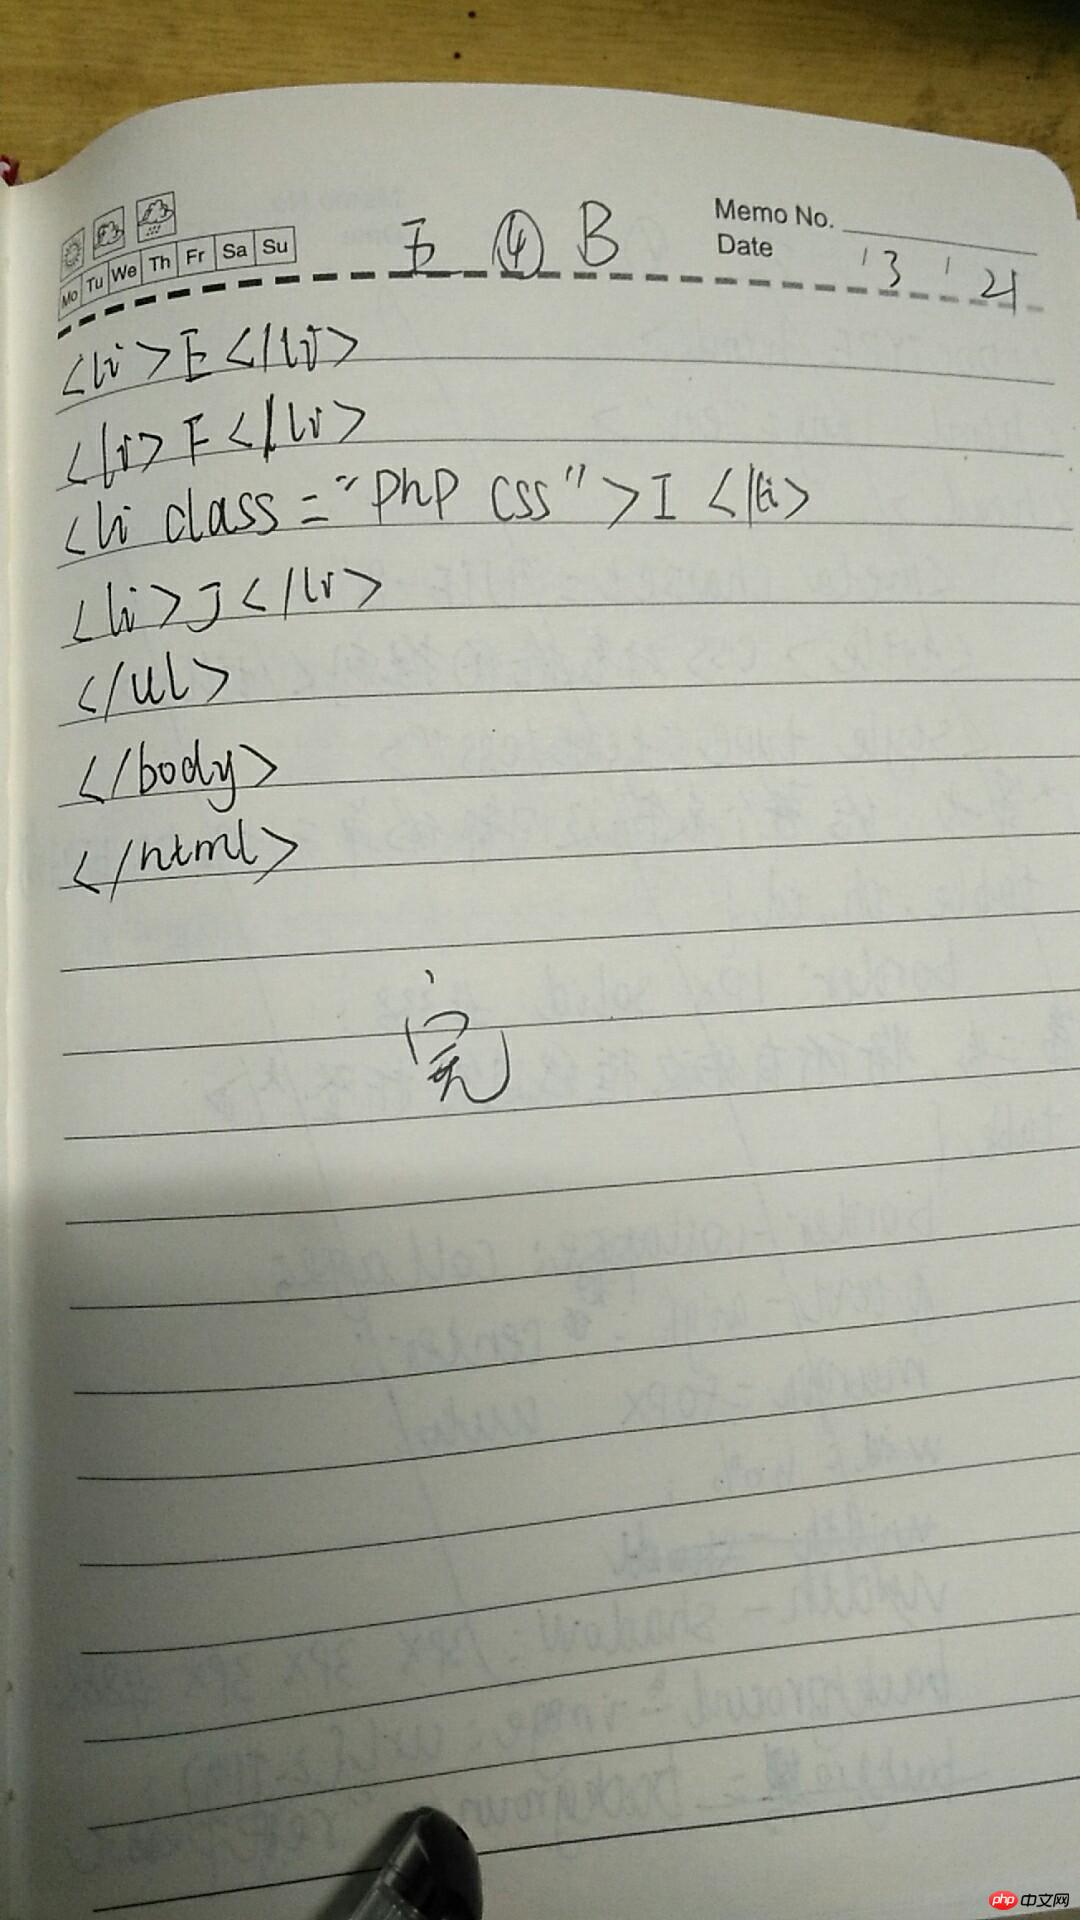 Memo No.
Mo Tu We Th Fr Sa Su
五 ④ B
Date '3 '21
<li>E</li>
<li>F</li>
<li class="php css">I</li>
<li>J</li>
</ul>
</body>
</html>
完
php 中文网